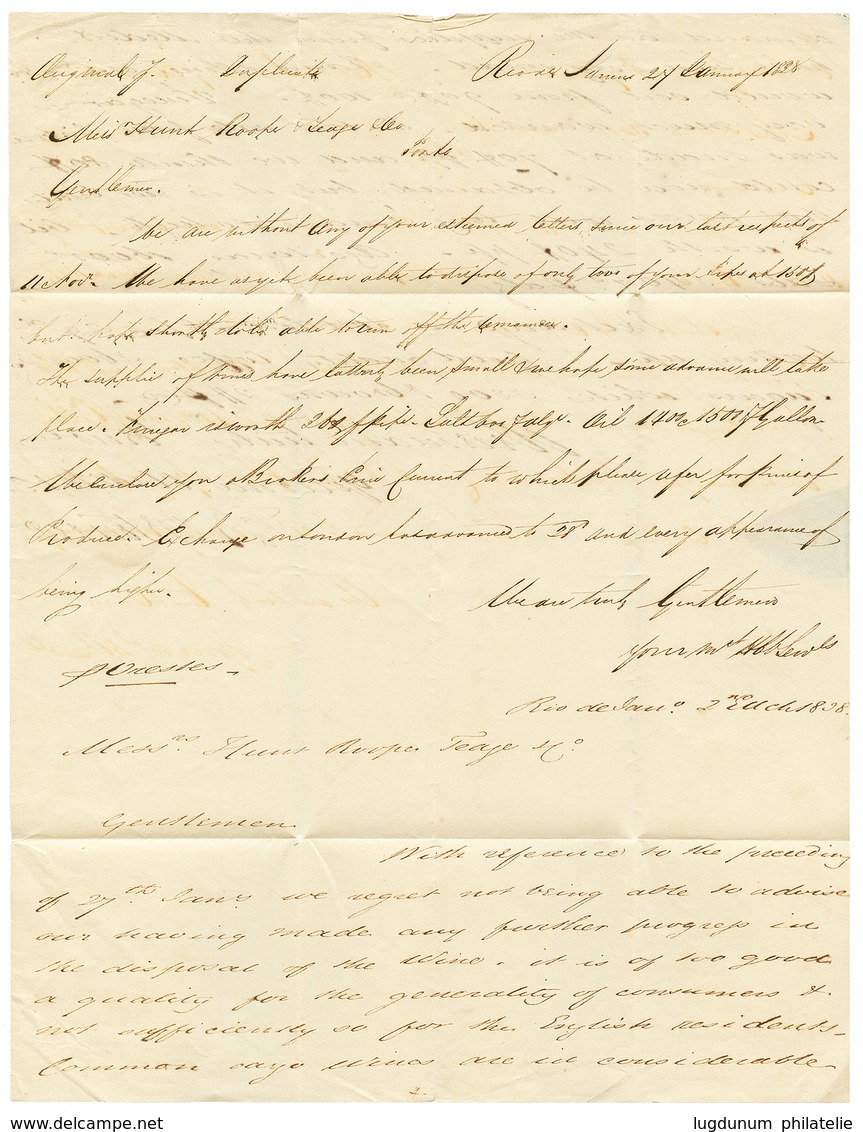 Original p. Duplicate Rio de Janeiro 27 January 1838
Mess Hunt Roope Teage & Co
Porto
Gentlemen.
We are without any of your esteemed letters since our last respects of
11 Nov. We have as yet been able to dispose of only two of your Pipes at 150
but hope shortly to be able to run off the remainder.
The supplies of wines have latterly been small & we hope some advance will take
place. Vinegar is worth p pipe. Salt Oil 1400 a 1500 p Gallon
We enclose you a Brokers Price Current to which please refer for prices of
Produce. Exchange on London has advanced to and every appearance of
being higher.
We are truly Gentlemen
Your
p Orestes
Rio de Jano. 2nd Mch 1838.
Messrs. Hunt Roope Teage & Co
Gentlemen
With reference to the preceding
of 27th Jany we regret not being able to advise
our having made any further progress in
the disposal of the Wine. it is of too good
a quality for the generality of consumers &
not sufficiently so for the English residents.
Common cargo Wines are in considerable
www.delcampe.net lugdunum philatelie